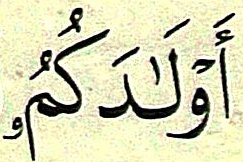 أَوْلَٰدَكُمُۥ